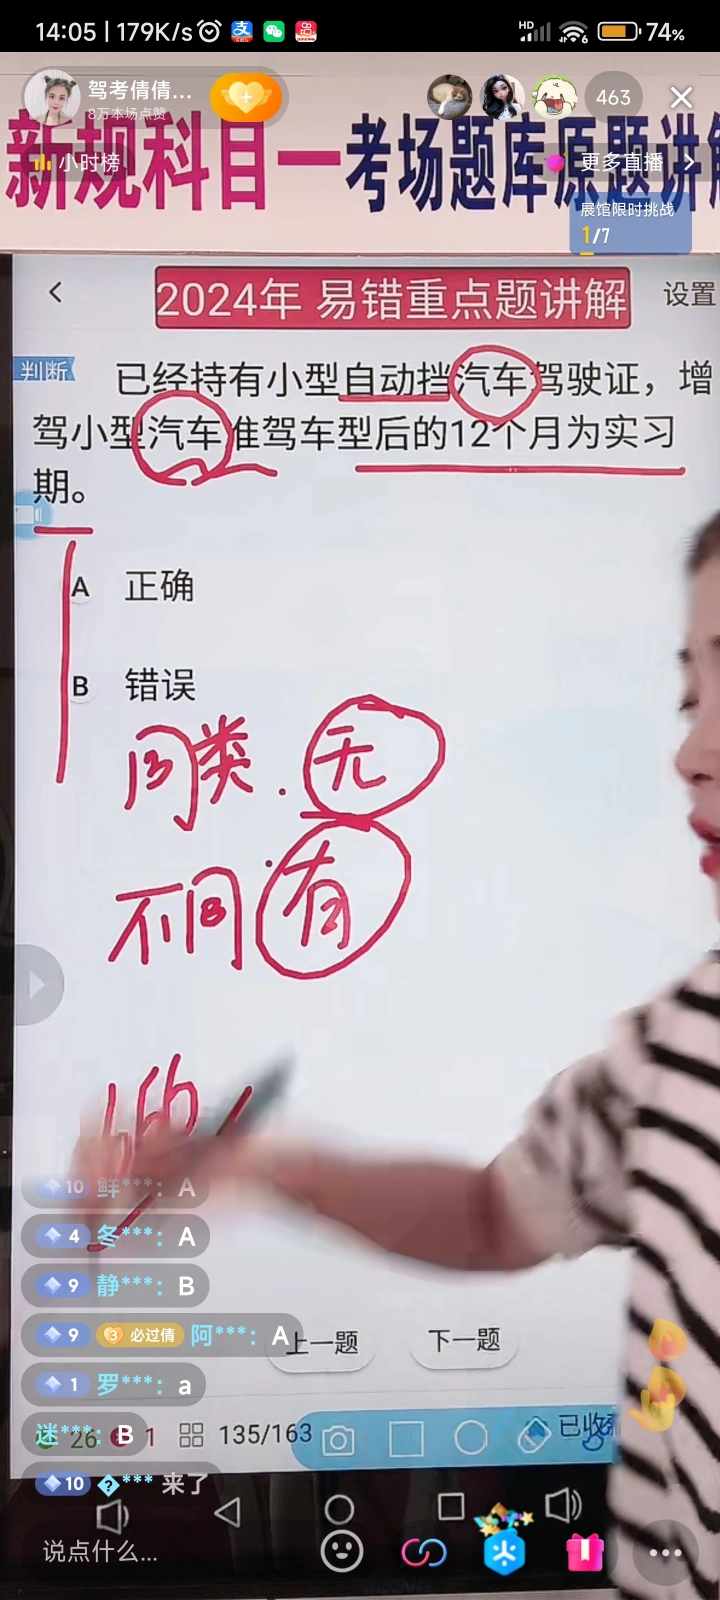 14:05 | 179K/s
HD
6
74%
驾考倩倩...
8万本场点赞
463
新规科目一考场题库原题讲解
小时榜
更多直播
展馆限时挑战
1/7
2024年 易错重点题讲解
设置
判断
已经持有小型自动挡汽车驾驶证，增
驾小型汽车准驾车型后的12个月为实习
期。
A 正确
B 错误
同类.无
不同 有
10 鲜***： A
4 冬***： A
9 静***： B
9 3 必过倩 阿***： A
上一题
下一题
1 罗***： a
迷***： B
26 1
135/163
已收藏
10 ***来了
说点什么...